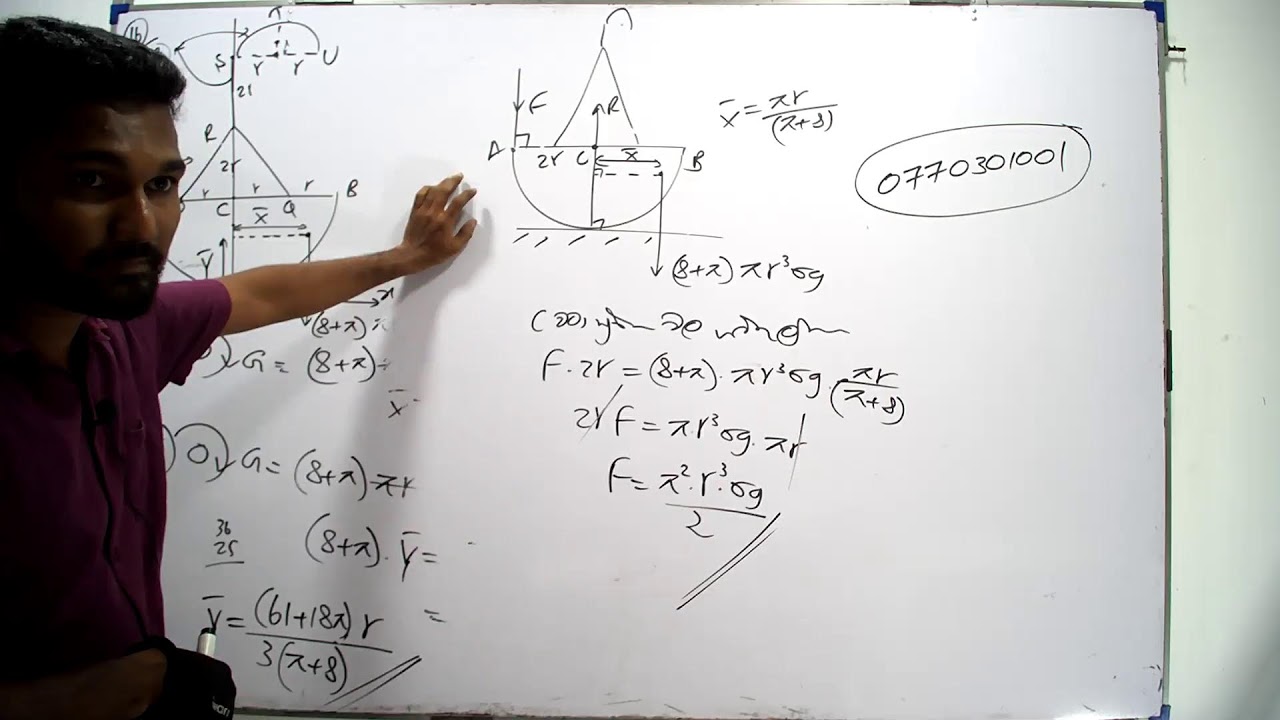 16
S r r U
2r
R
2r
r r r B
C Q
x̄
ȳ
x
(8+π)
G = (8+π)
x̄
G = (8+π) πr
36
25
(8+π). ȳ =
ȳ = (61+18π) r / 3(π+8)
=
F
R
A 2r C x̄ B
(8+π) πr³σg
x̄ = πr / (π+8)
0770301001
F . 2r = (8+π) . πr³σg . πr / (π+8)
2r F = π.r³σg. πr
F = π². r³. σg / 2